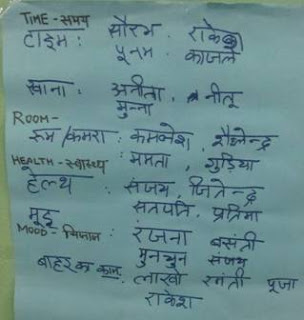 TIME - समय
टाइम : सौरभ, राकेश
पूनम, काजल
खाना : अनीता, नीतू
मुन्ना
ROOM -
रूम / कमरा : कमलेश, शैलेन्द्र
ममता, गुड़िया
HEALTH - स्वास्थ्य
हेल्थ : संजय, जितेन्द्र
सतपति, प्रतिमा
मूड : रंजना बसंती
MOOD - मिजाज
मुनचुन संजय
बाहर का काम : लाखो पूजा
राकेश